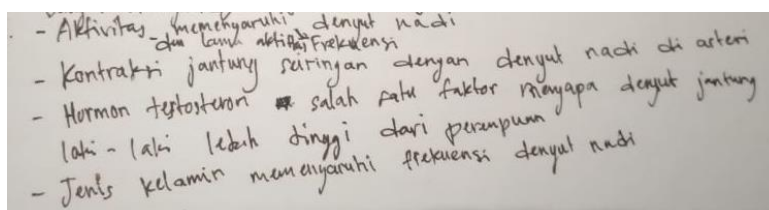 - Aktivitas memengaruhi denyut nadi
dan lama aktifitas Frekuensi
- Kontraksi jantung seiringan dengan denyut nadi di arteri
- Hormon testosteron salah satu faktor mengapa denyut jantung
laki-laki lebih tinggi dari perempuan
- Jenis kelamin memengaruhi frekuensi denyut nadi